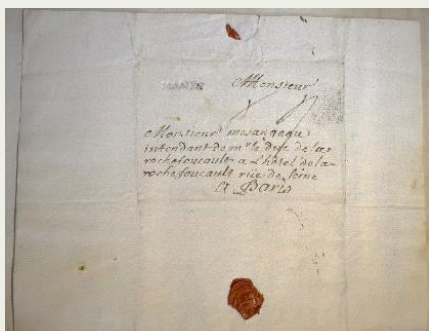 MANTE
Monsieur
Monsieur mesangequi
intendant de mr la Duc de la
rochefoucault a L'hôtel de la
rochefoucault rüe de Seine
A Paris